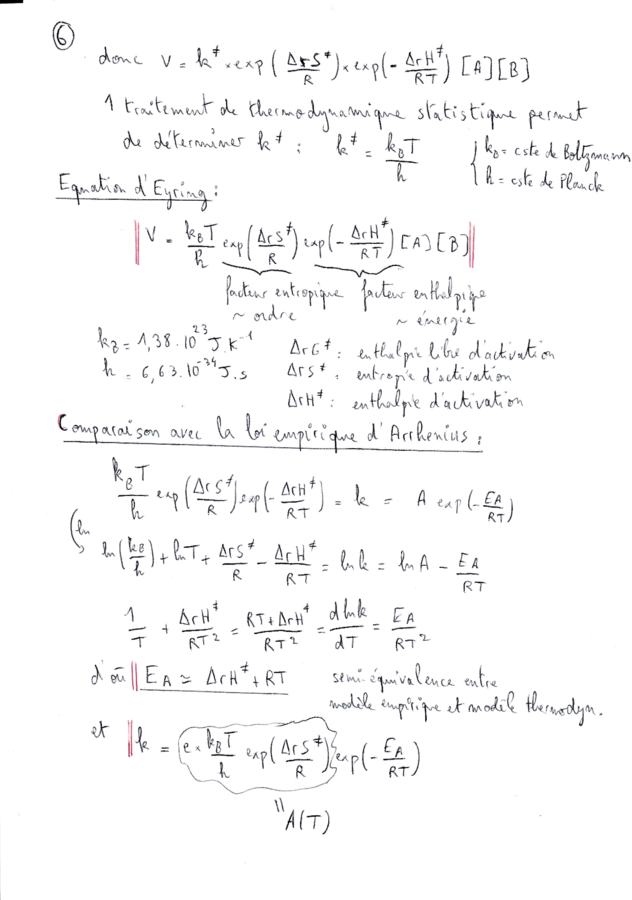 6
donc V = k^≠ × exp(ΔrS^≠/R) × exp(-ΔrH^≠/RT) [A][B]
1 traitement de thermodynamique statistique permet
de déterminer k^≠ : k^≠ = k_B T/h { k_B = cste de Boltzmann
h = cste de Planck
Equation d'Eyring :
V = k_B T/h exp(ΔrS^≠/R) exp(-ΔrH^≠/RT) [A][B]
facteur entropique facteur enthalpique
~ ordre ~ énergie
k_B = 1,38.10^23 J.K^-1 ΔrG^≠ : enthalpie libre d'activation
h = 6,63.10^-34 J.s ΔrS^≠ : entropie d'activation
ΔrH^≠ : enthalpie d'activation
Comparaison avec la loi empirique d'Arrhenius :
k_B T/h exp(ΔrS^≠/R) exp(-ΔrH^≠/RT) = k = A exp(-E_A/RT)
ln
ln(k_B/h) + lnT + ΔrS^≠/R - ΔrH^≠/RT = ln k = ln A - E_A/RT
1/T + ΔrH^≠/RT^2 = RT+ΔrH^≠/RT^2 = dlnk/dT = E_A/RT^2
d'où E_A ≃ ΔrH^≠ + RT semi-équivalence entre
modèle empirique et modèle thermodyn.
et k = e × k_B T/h exp(ΔrS^≠/R) exp(-E_A/RT)
=
A(T)